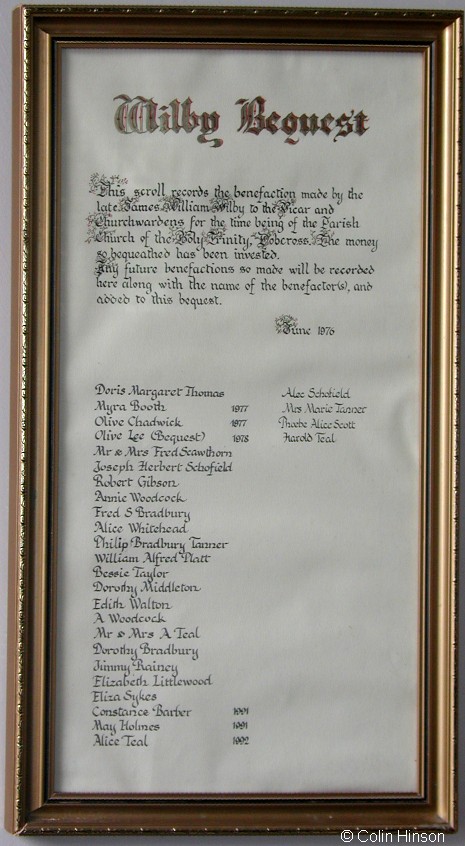 Wilby Bequest
This scroll records the benefaction made by the
late James William Wilby to the Vicar and
Churchwardens for the time being of the Parish
Church of the Holy Trinity, Dobcross. The money
so bequeathed has been invested.
Any future benefactions so made will be recorded
here along with the name of the benefactor(s), and
added to this bequest.
June 1976
Doris Margaret Thomas
Myra Booth 1977
Olive Chadwick 1977
Olive Lee (Bequest) 1978
Mr & Mrs Fred Scawthorn
Joseph Herbert Schofield
Robert Gibson
Annie Woodcock
Fred S Bradbury
Alice Whitehead
Philip Bradbury Tanner
William Alfred Platt
Bessie Taylor
Dorothy Middleton
Edith Walton
A Woodcock
Mr & Mrs A Teal
Dorothy Bradbury
Jimmy Rainey
Elizabeth Littlewood
Eliza Sykes
Constance Barber 1991
May Holmes 1991
Alice Teal 1992
Alec Schofield
Mrs Marie Tanner
Phoebe Alice Scott
Harold Teal
© Colin Hinson